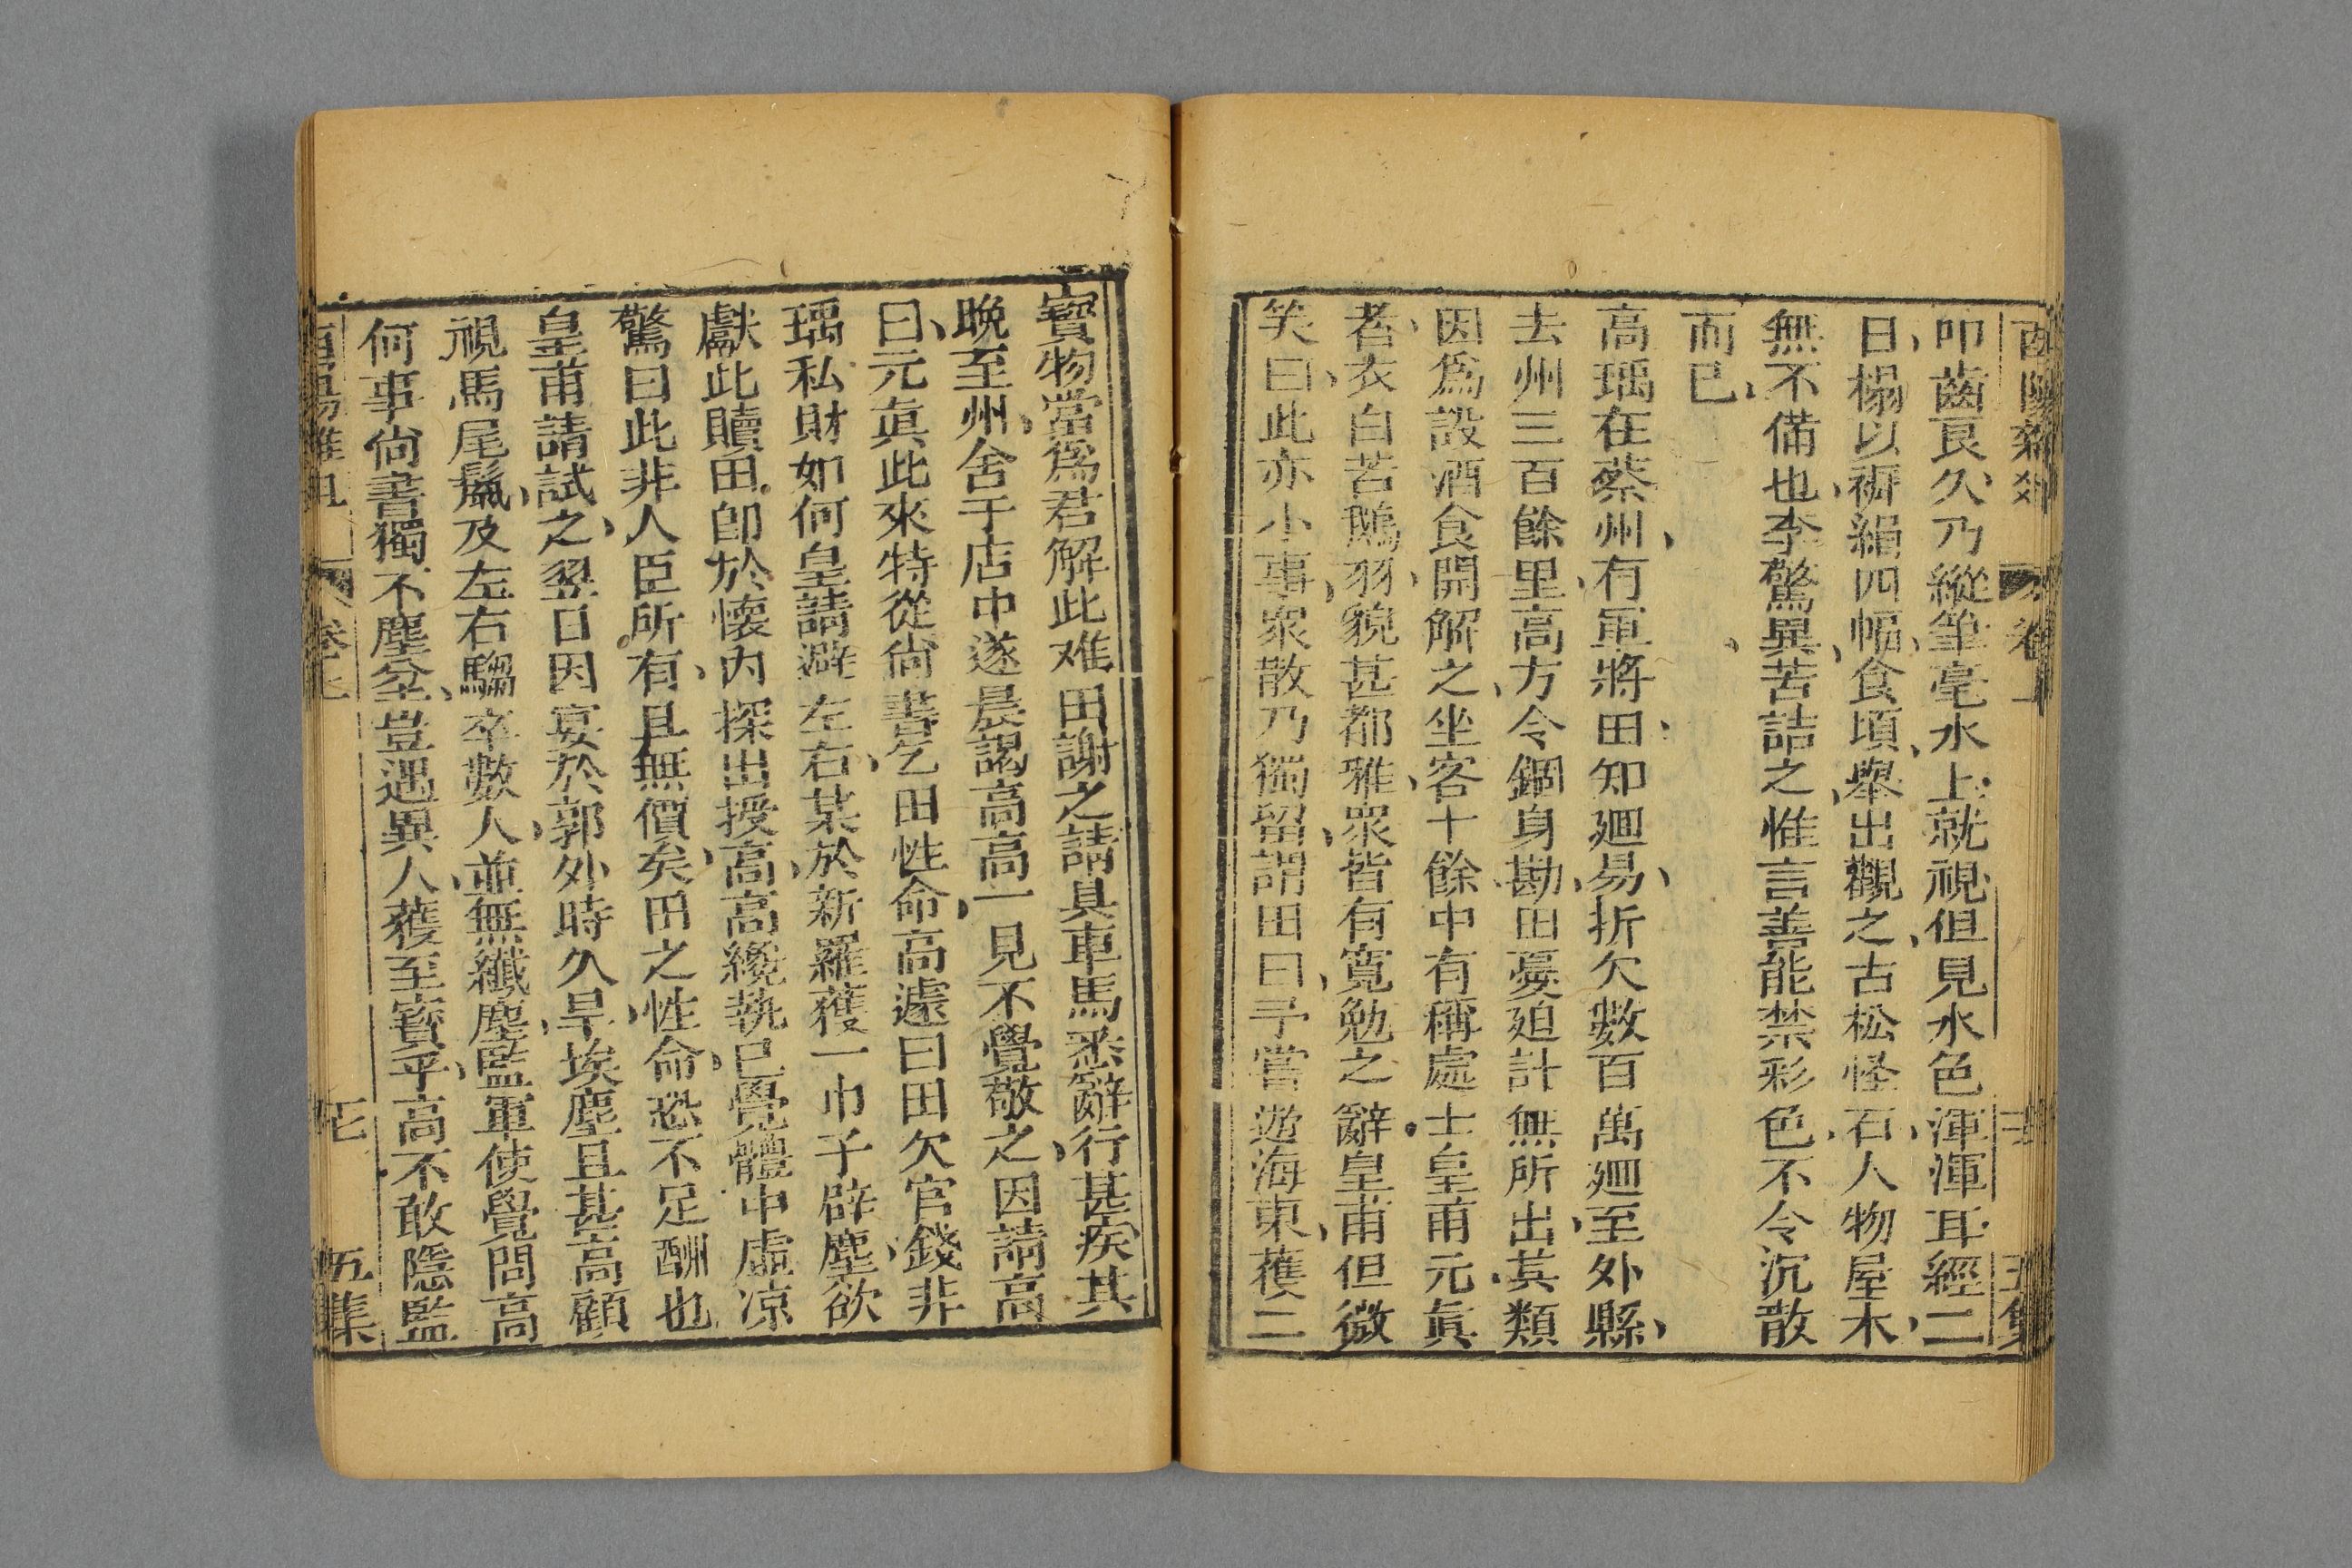 酉陽雜俎
卷
五集
叩齒良久、乃縱筆毫水上就視但見水色渾渾耳經二
日、榻以穉絹四幅、食頃、舉出觀之、古松怪石、人物屋木、
無不備也、李驚異、苦詰之、惟言善能禁彩色、不令沉散
而已、
高瑀在蔡州、有軍將田知廻易、折欠數百萬廻至外縣、
去州三百餘里、高方令錮身勘、田憂廹計無所出、其類
因爲設酒食開解之、坐客十餘中有稱處士皇甫元眞
者、衣白若鵝羽、貌甚都雅、衆皆有寬勉之辭皇甫但微
笑曰、此亦小事、衆散乃獨留、謂田曰、予嘗遊海東、獲二
寶物當爲君解此难田謝之請具車馬悉辭行甚疾其
晚至州、舍于店中遂晨謁高高一見不覺敬之、因請高
曰、元眞此來特從尙書乞田性命、高遽曰田欠官錢非
瑀私財如何皇請避左右、某於新羅獲一巾子辟塵、欲
獻此贖田卽於懷內探出授高、高纔執已覺體中虛凉
驚曰此非人臣所有、且無價矣、田之性命、恐不足酬也
皇甫請試之、翌日因宴於郭外時久旱、埃塵且甚高顧
視馬尾鬣、及左右騶卒數人、並無纖塵、監軍使覺問高
何事尙書獨不塵坌、豈遇異人、獲至寶乎、高不敢隱監
卷七
五集